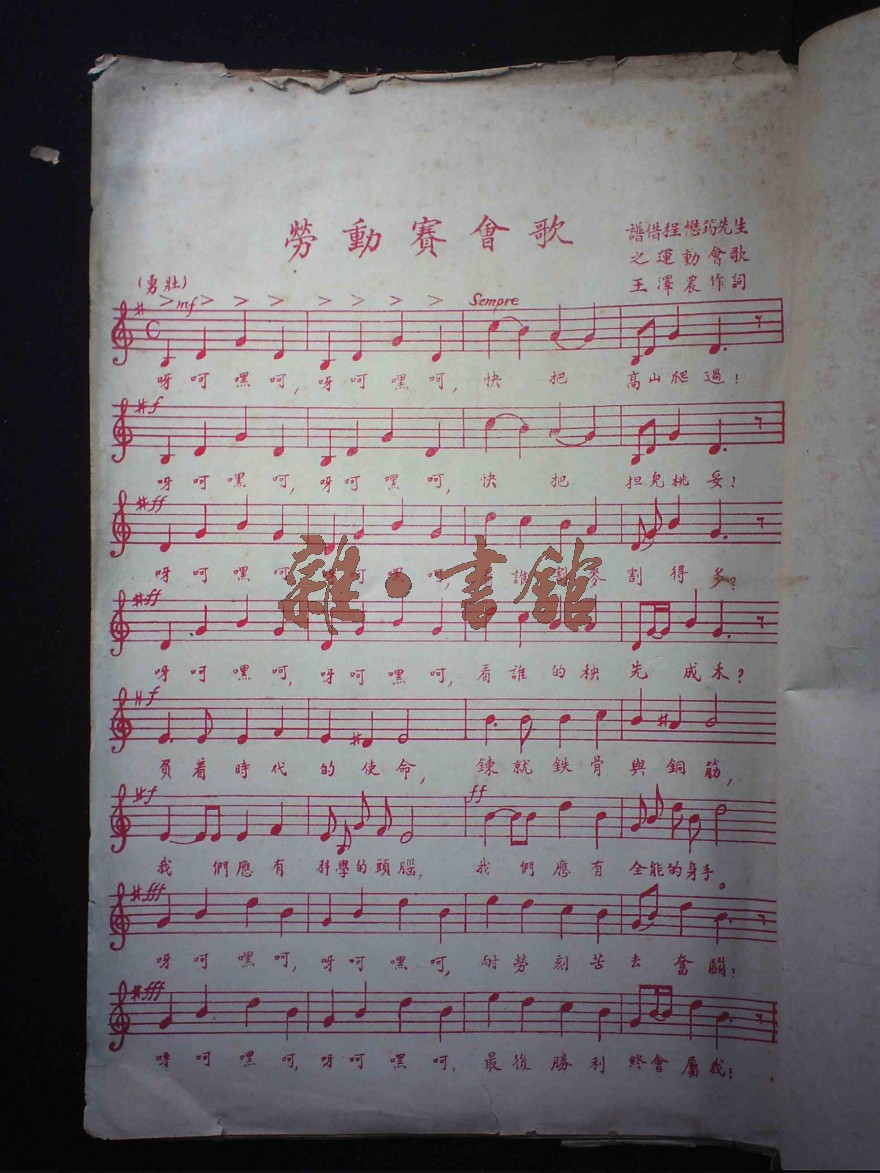 勞動賽會歌
譜借程懋筠先生
之運動會歌
王澤農作詞
(勇壯)
mf Sempre
呀呵嘿呵,呀呵嘿呵,快把高山爬過!
f
呀呵嘿呵,呀呵嘿呵,快把担兒挑妥!
ff
呀呵嘿呵,呀呵嘿呵,看誰割麥割得多?
ff
呀呵嘿呵,呀呵嘿呵,看誰的秧先成禾?
f
負着時代的使命,鍊就鉄骨與銅筋,
f ff
我們應有科學的頭腦,我們應有全能的身手。
fff
呀呵嘿呵,呀呵嘿呵,耐勞刻苦去奮鬭!
fff
呀呵嘿呵,呀呵嘿呵,最後勝利終會屬我!
雜·書館